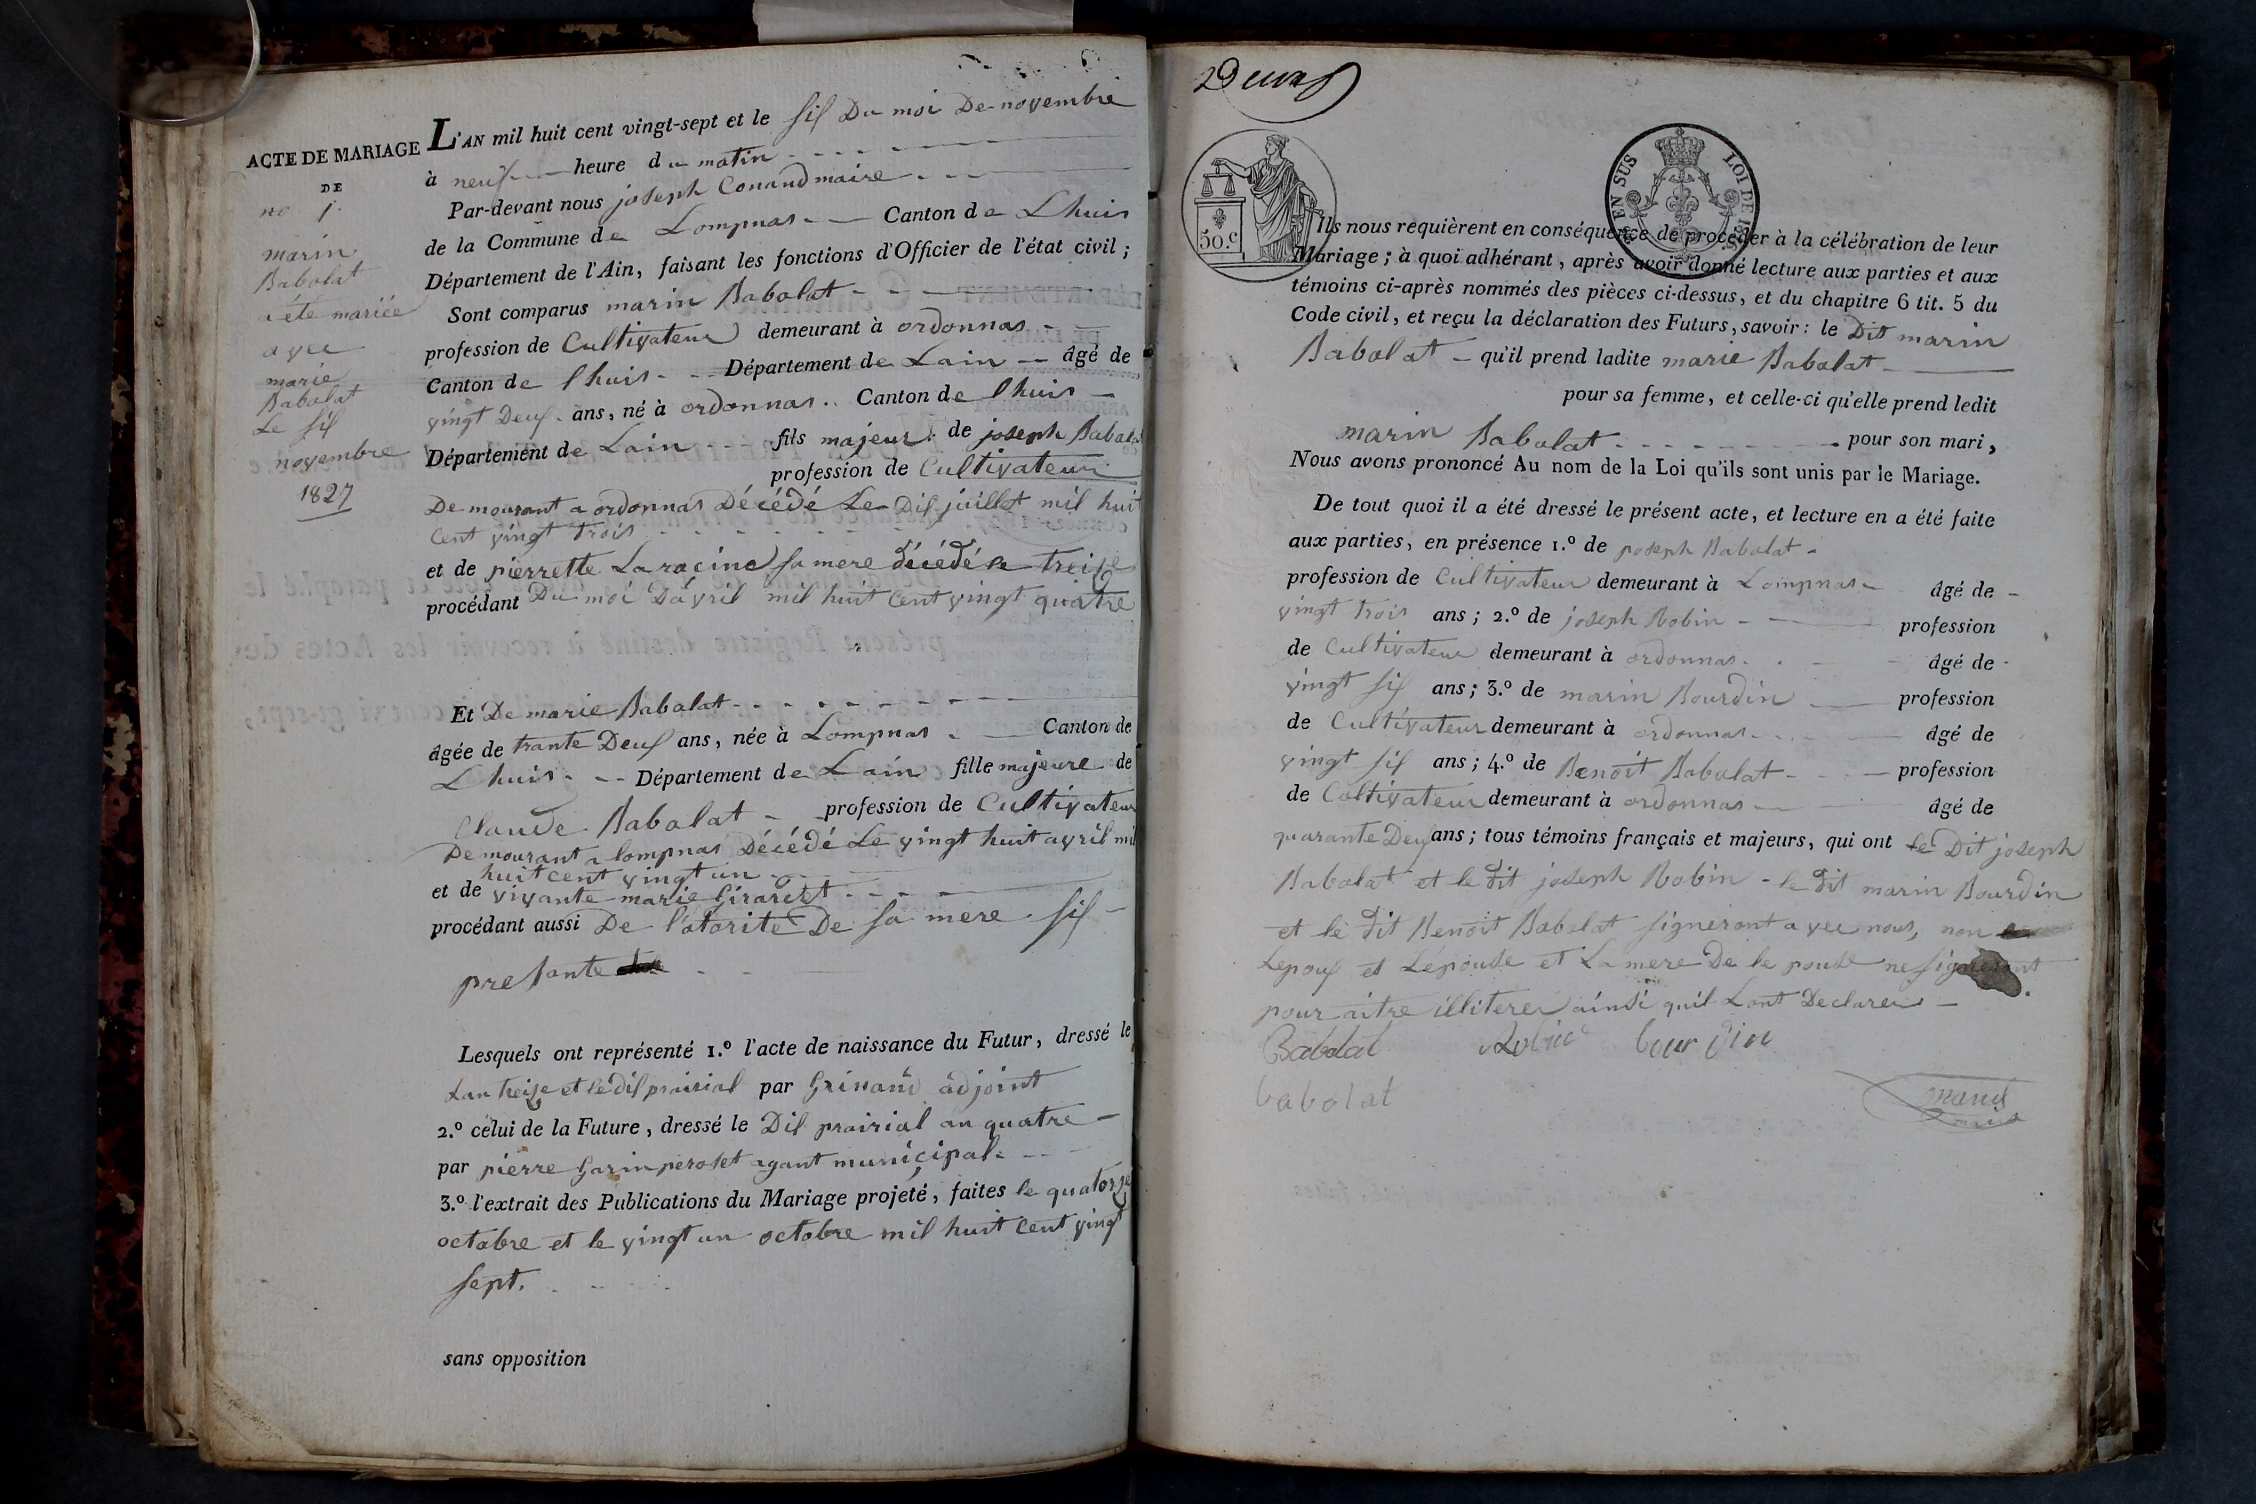 ACTE DE MARIAGE
DE
no 1.
marin
Babolat
a éte mariée
avec
marie
Babolat
Le sis
novembre
1827
L'AN mil huit cent vingt-sept et le sis Du moi De novembre
à neuf heure du matin
Par-devant nous joseph Conand maire
de la Commune de Lompnas Canton de Lhuis
Département de l'Ain, faisant les fonctions d'Officier de l'état civil ;
Sont comparus marin Babolat
profession de Cultivateur demeurant à ordonnas
Canton de lhuis Département de Lain âgé de
vingt Deus ans, né à ordonnas Canton de lhuis
Département de Lain fils majeur de joseph Babolat
profession de Cultivateur
Demourant a ordonnas Décédé Le Dis juillet mil huit
cent vingt trois
et de pierrette Laracine sa mere décédé le treize
procédant Du moi Davril mil huit cent vingt quatre
Et De marie Babolat
âgée de trante Deus ans, née à Lompnas Canton de
Lhuis Département de Lain fille majeure de
Claude Babolat profession de Cultivateur
Demourant a lompnas Décédé Le vingt huit avril mil
huit cent vingt un
et de vivante marie
procédant aussi De l'atorité De sa mere
presante
Lesquels ont représenté 1.º l'acte de naissance du Futur, dressé le
Lan treize et le dis prairial par Grinand adjoint
2.º celui de la Future, dressé le Dis prairial an quatre
par pierre Garin perotet agant municipal
3.º l'extrait des Publications du Mariage projeté, faites le quatorze
octobre et le vingt un octobre mil huit cent vingt
sept.
sans opposition
50.c
EN SUS
LOI DE
Ils nous requièrent en conséquence de procéder à la célébration de leur
Mariage ; à quoi adhérant, après avoir donné lecture aux parties et aux
témoins ci-après nommés des pièces ci-dessus, et du chapitre 6 tit. 5 du
Code civil, et reçu la déclaration des Futurs, savoir : le Dit marin
Babolat qu'il prend ladite marie Babolat
pour sa femme, et celle-ci qu'elle prend ledit
marin Babolat pour son mari,
Nous avons prononcé Au nom de la Loi qu'ils sont unis par le Mariage.
De tout quoi il a été dressé le présent acte, et lecture en a été faite
aux parties, en présence 1.º de joseph Babolat
profession de Cultivateur demeurant à Lompnas âgé de
vingt trois ans ; 2.º de joseph Robin profession
de Cultivateur demeurant à ordonnas âgé de
vingt sis ans ; 3.º de marin Bourdin profession
de Cultivateur demeurant à ordonnas âgé de
vingt sis ans ; 4.º de Benoit Babolat profession
de Coltivateur demeurant à ordonnas âgé de
quarante Deus ans ; tous témoins français et majeurs, qui ont le Dit joseph
Babolat et le dit joseph Robin le dit marin Bourdin
et le dit Benoit Babolat signeront avec nous, non
Lepous et Lépouse et La mere De le pouse ne signeront
pour aitre illiterer ainsi quil Lont Declarer
Babolat Robin bourdin
babolat